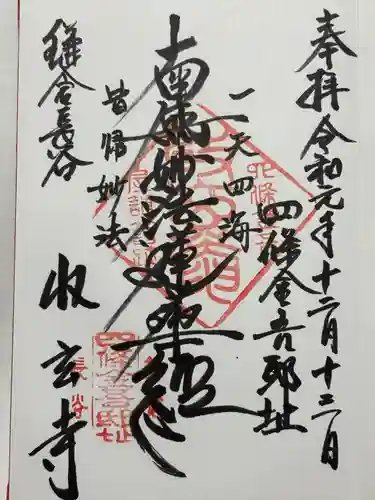 奉拝 令和元年十二月十三日
四條金吾邸址
一天四海
南無妙法蓮華経
皆帰妙法
鎌倉長谷
収玄寺